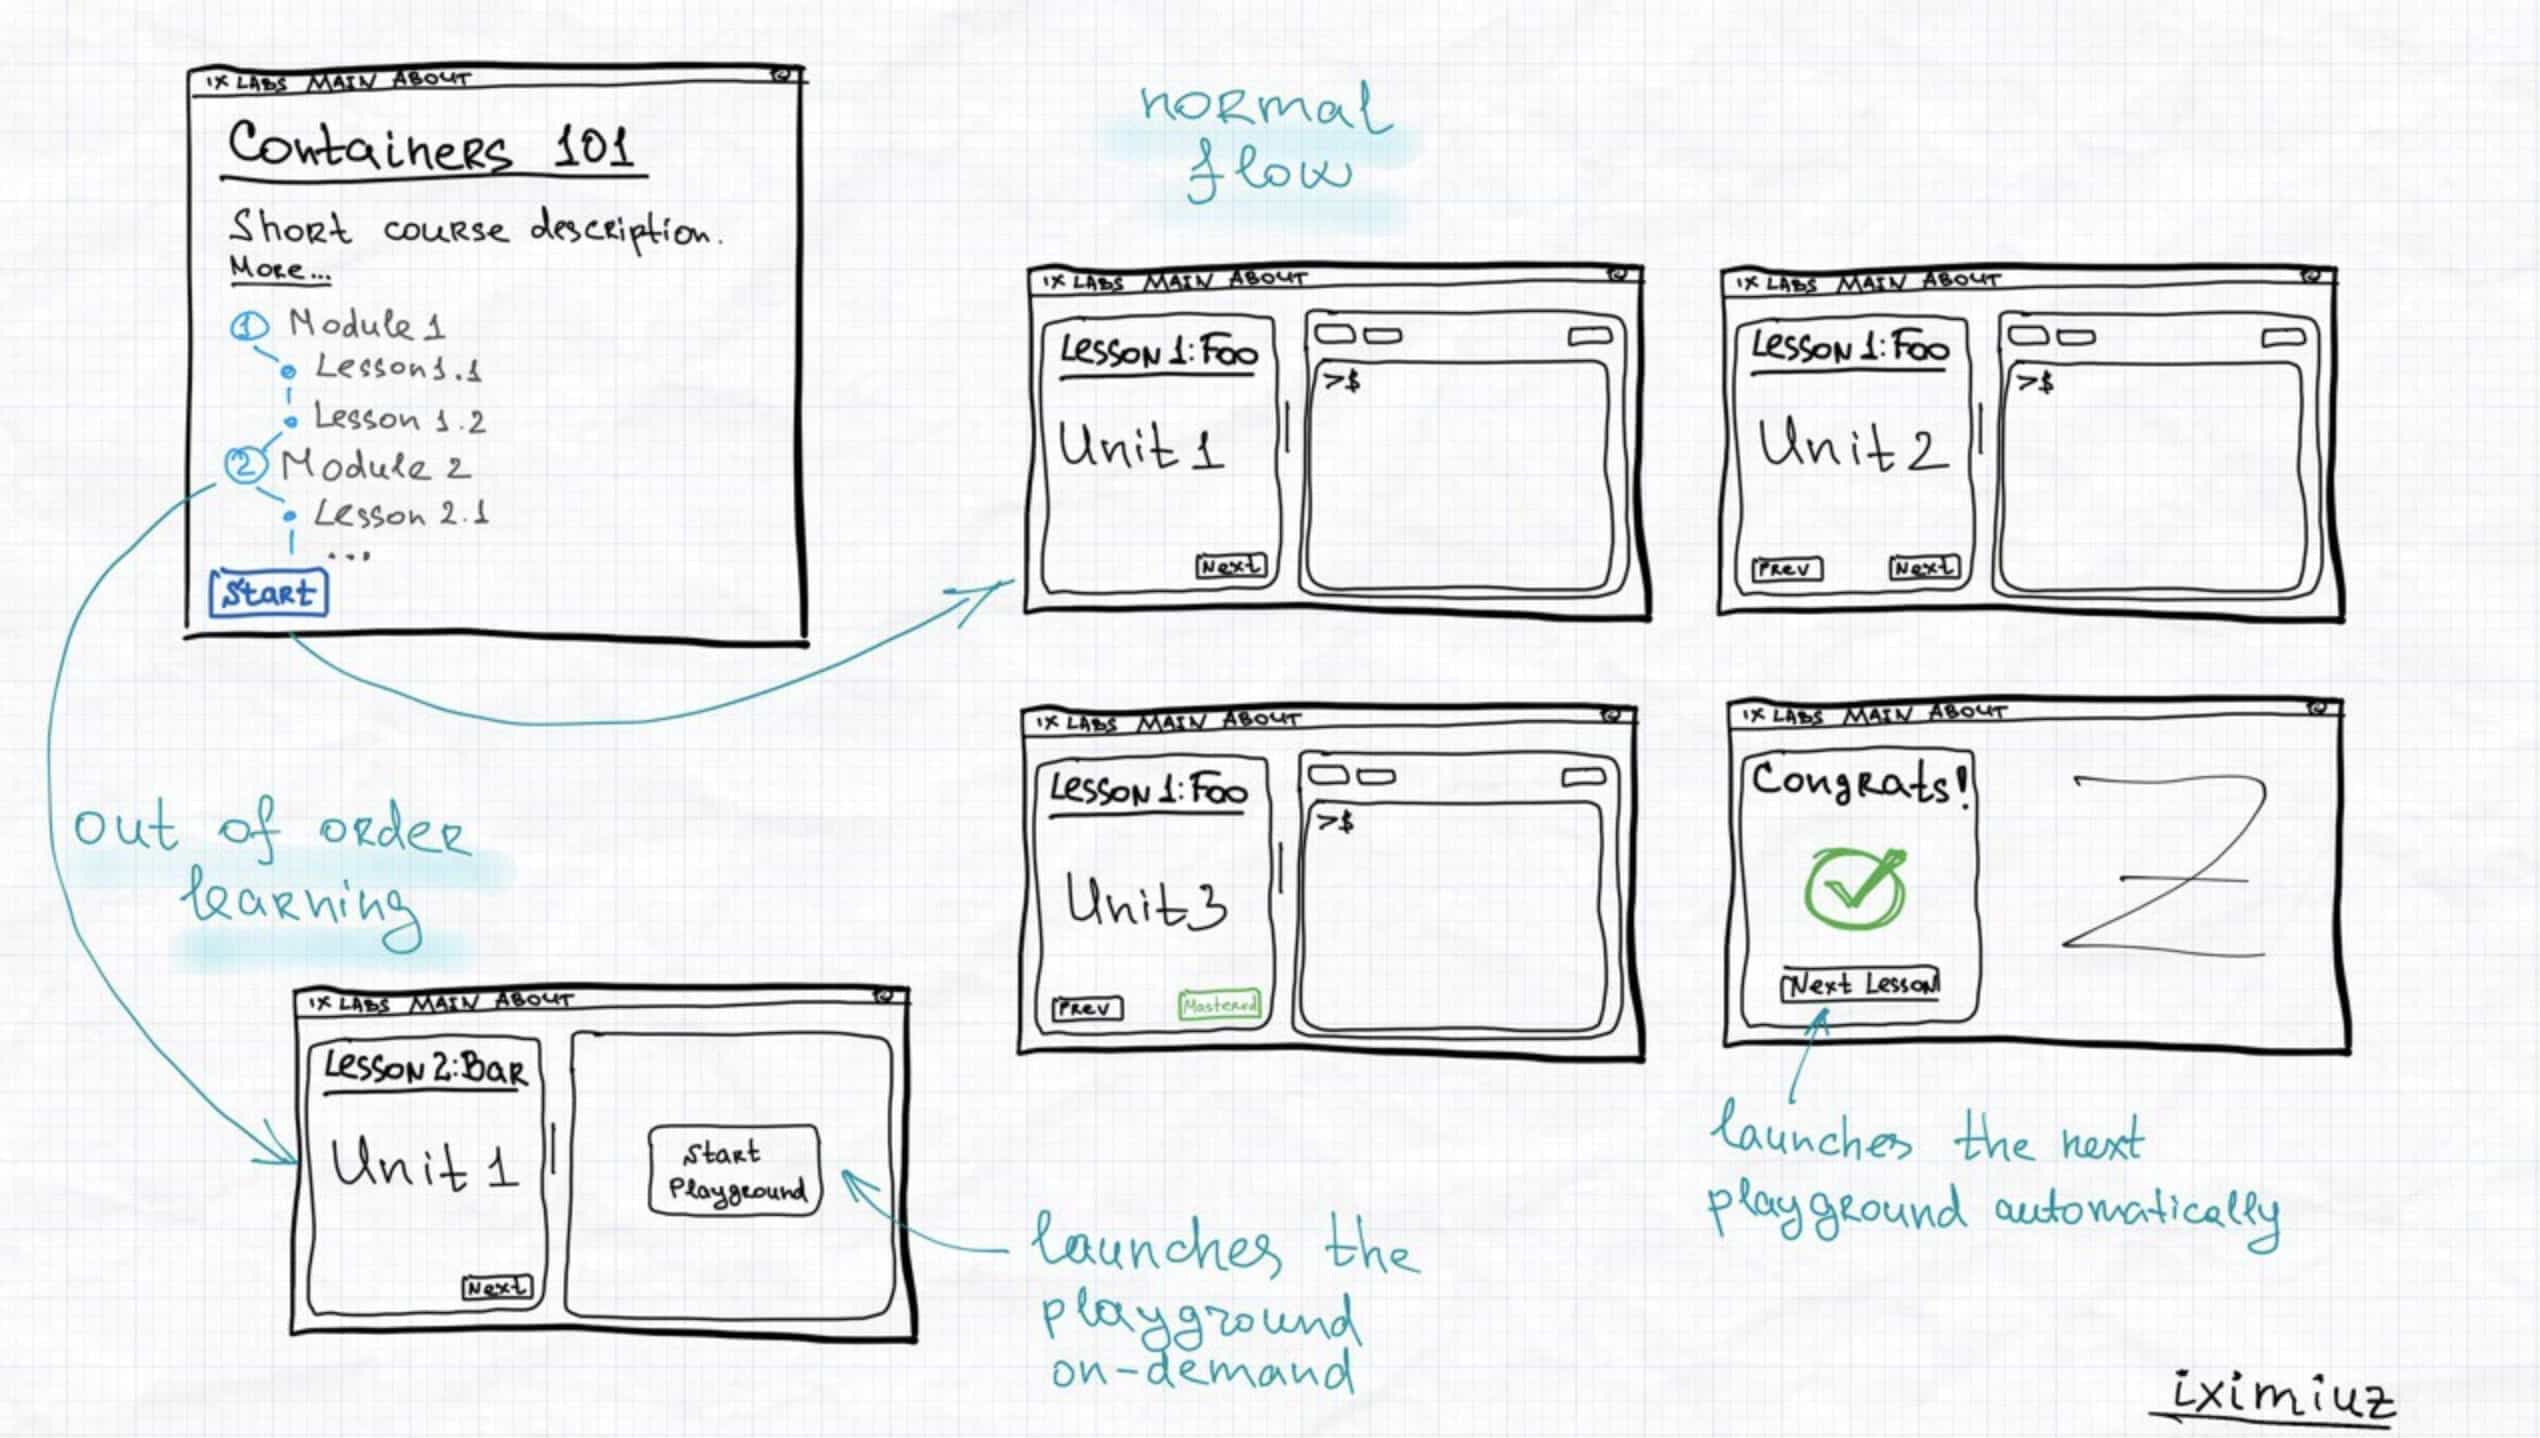 IX LABS MAIN ABOUT
Containers 101
Short course description.
More...
1 Module 1
Lesson 1.1
Lesson 1.2
2 Module 2
Lesson 2.1
...
Start
normal
flow
IX LABS MAIN ABOUT
Lesson 1: Foo
Unit 1
Next
>$
IX LABS MAIN ABOUT
Lesson 1: Foo
Unit 2
Prev Next
>$
IX LABS MAIN ABOUT
Lesson 1: Foo
Unit 3
Prev Mastered
>$
IX LABS MAIN ABOUT
Congrats!
Next Lesson
launches the next
playground automatically
out of order
learning
IX LABS MAIN ABOUT
Lesson 2: Bar
Unit 1
Next
Start
Playground
launches the
playground
on-demand
iximiuz